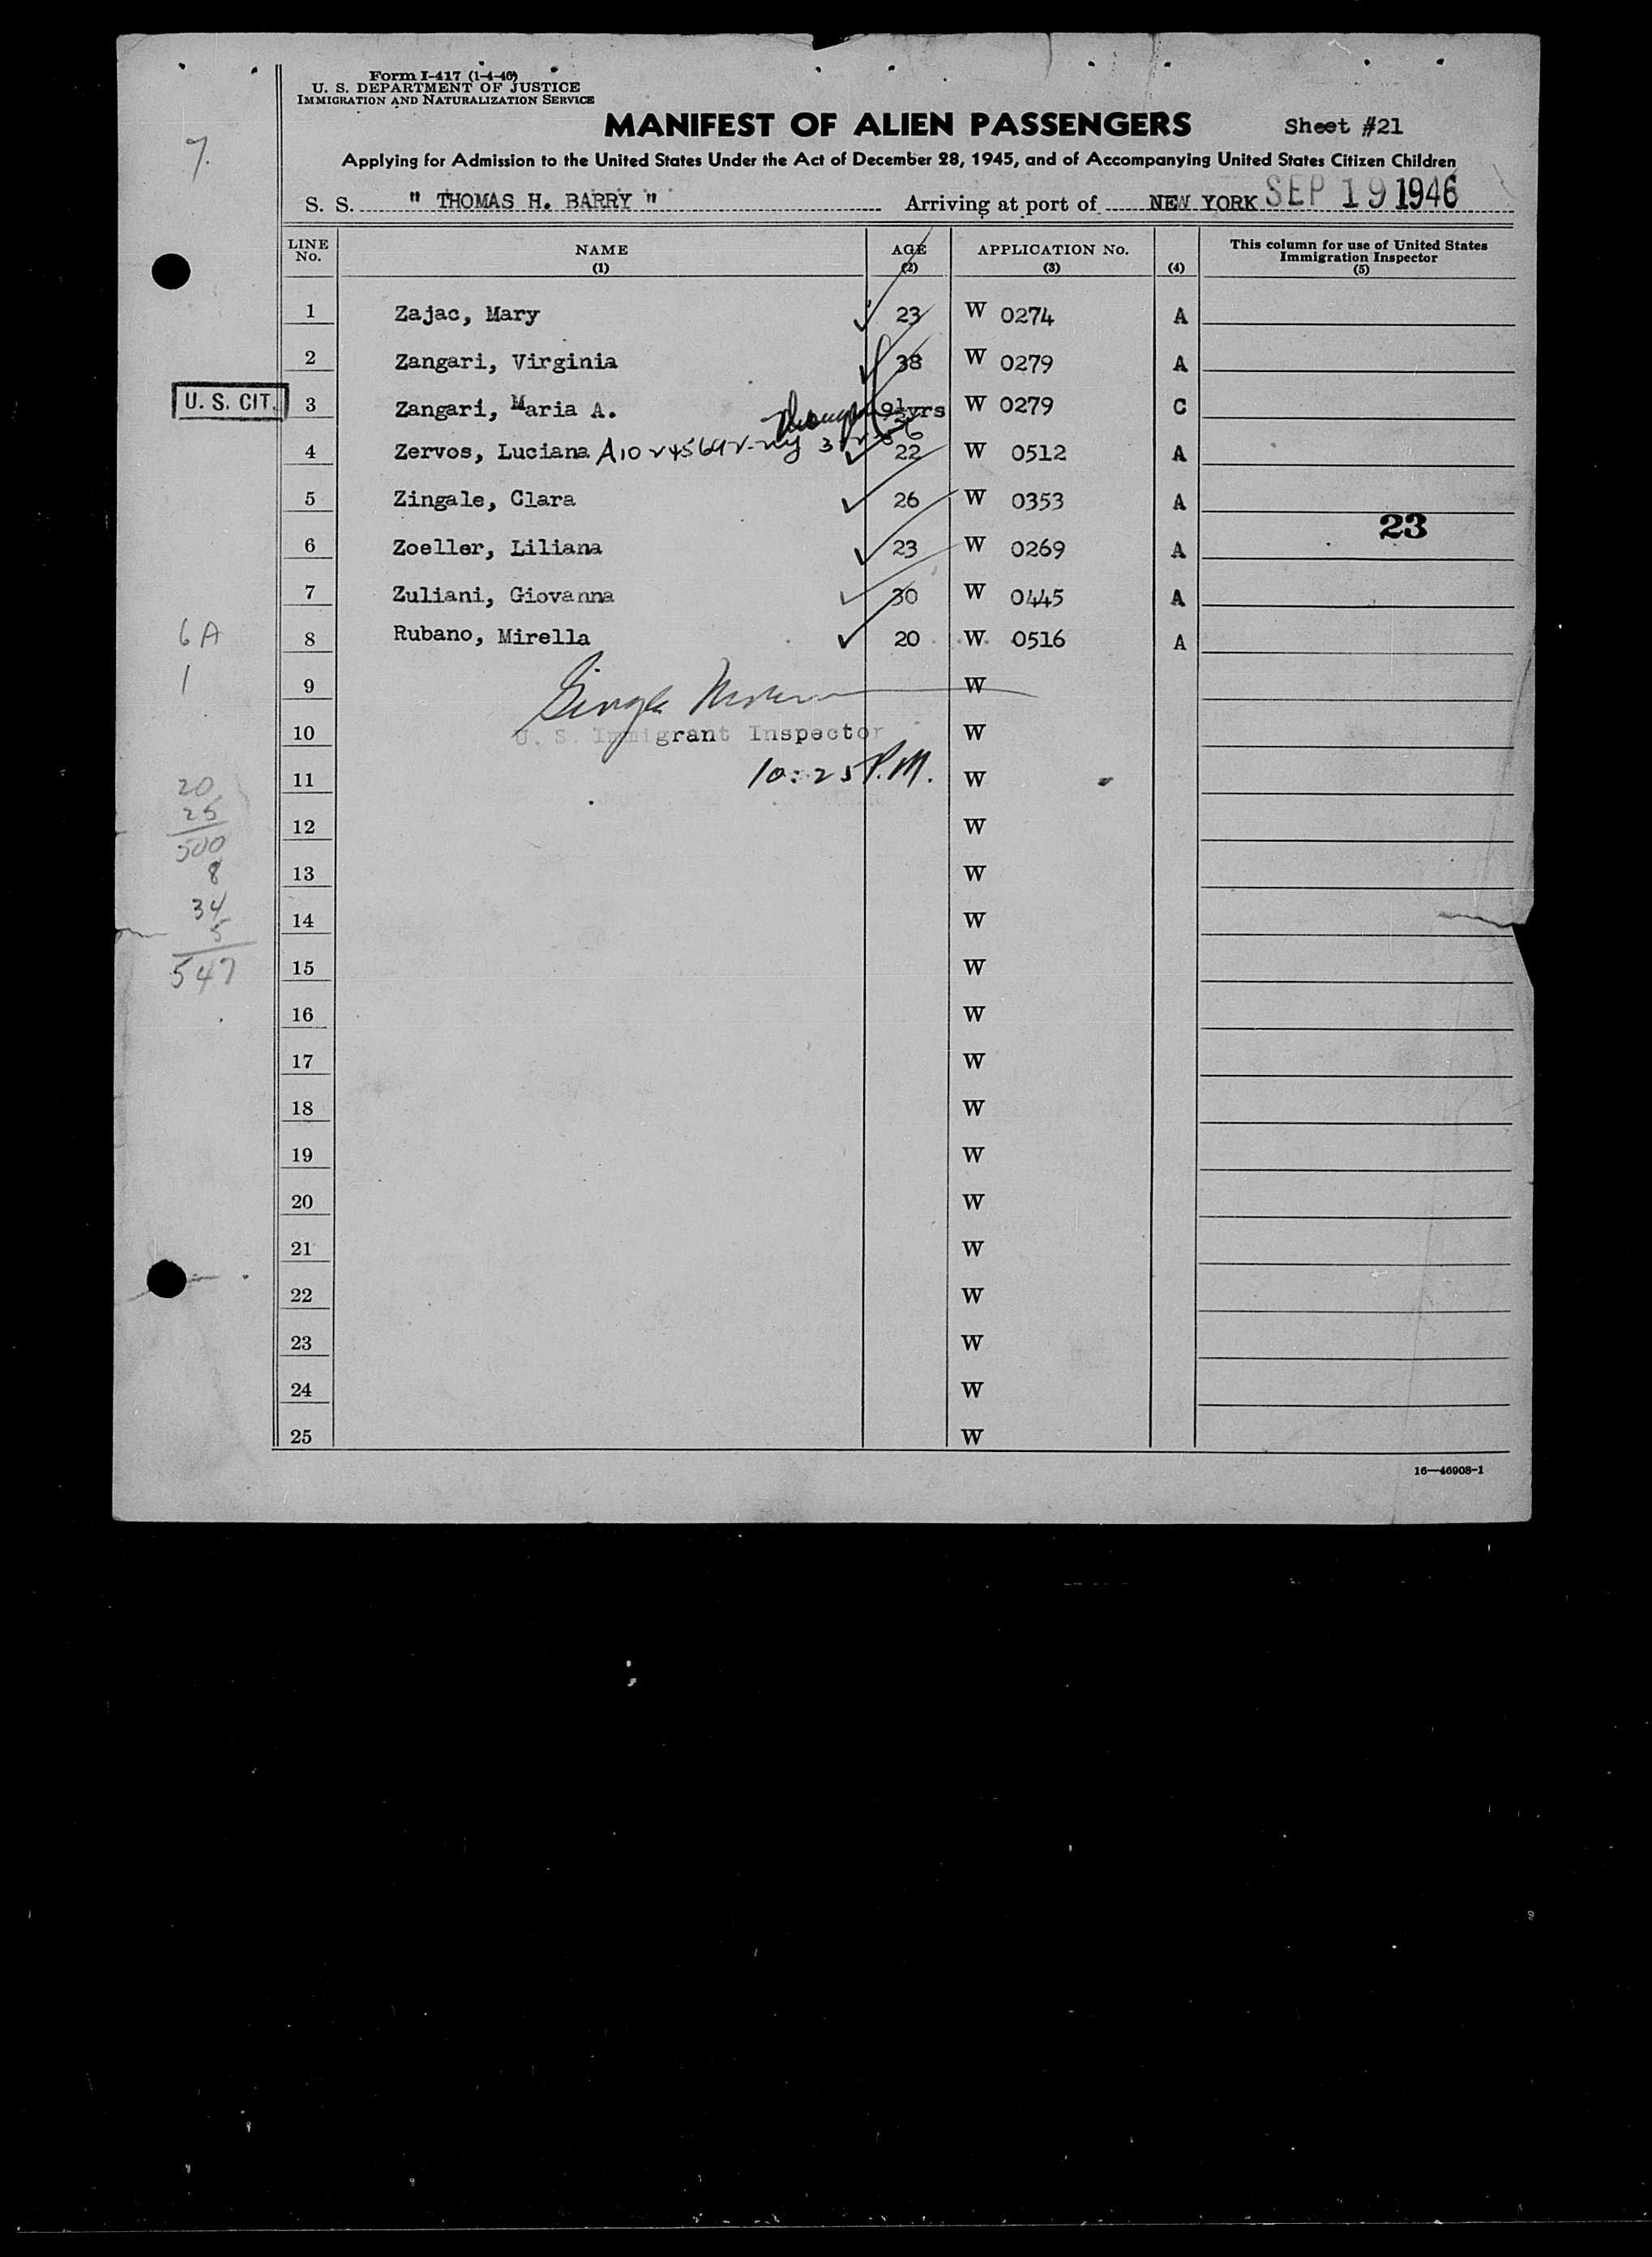 Form I-417 (1-4-46)
U. S. DEPARTMENT OF JUSTICE
IMMIGRATION AND NATURALIZATION SERVICE
7.
MANIFEST OF ALIEN PASSENGERS Sheet #21
Applying for Admission to the United States Under the Act of December 28, 1945, and of Accompanying United States Citizen Children
S. S. " THOMAS H. BARRY " Arriving at port of NEW YORK SEP 19 1946
LINE No. NAME (1) AGE (2) APPLICATION No. (3) (4) This column for use of United States Immigration Inspector (5)
1 Zajac, Mary 23 W 0274 A
2 Zangari, Virginia 38 W 0279 A
U. S. CIT. 3 Zangari, Maria A. 9½yrs W 0279 C
4 Zervos, Luciana 22 W 0512 A
5 Zingale, Clara 26 W 0353 A
23
6 Zoeller, Liliana 23 W 0269 A
7 Zuliani, Giovanna 30 W 0445 A
6 A
8 Rubano, Mirella 20 W 0516 A
1
9 W
10 U. S. Immigrant Inspector W
11 10:25 P.M. W
20
25
12 W
500
13 W
8
34
14 W
5
15 W
547
16 W
17 W
18 W
19 W
20 W
21 W
22 W
23 W
24 W
25 W
16—46908-1